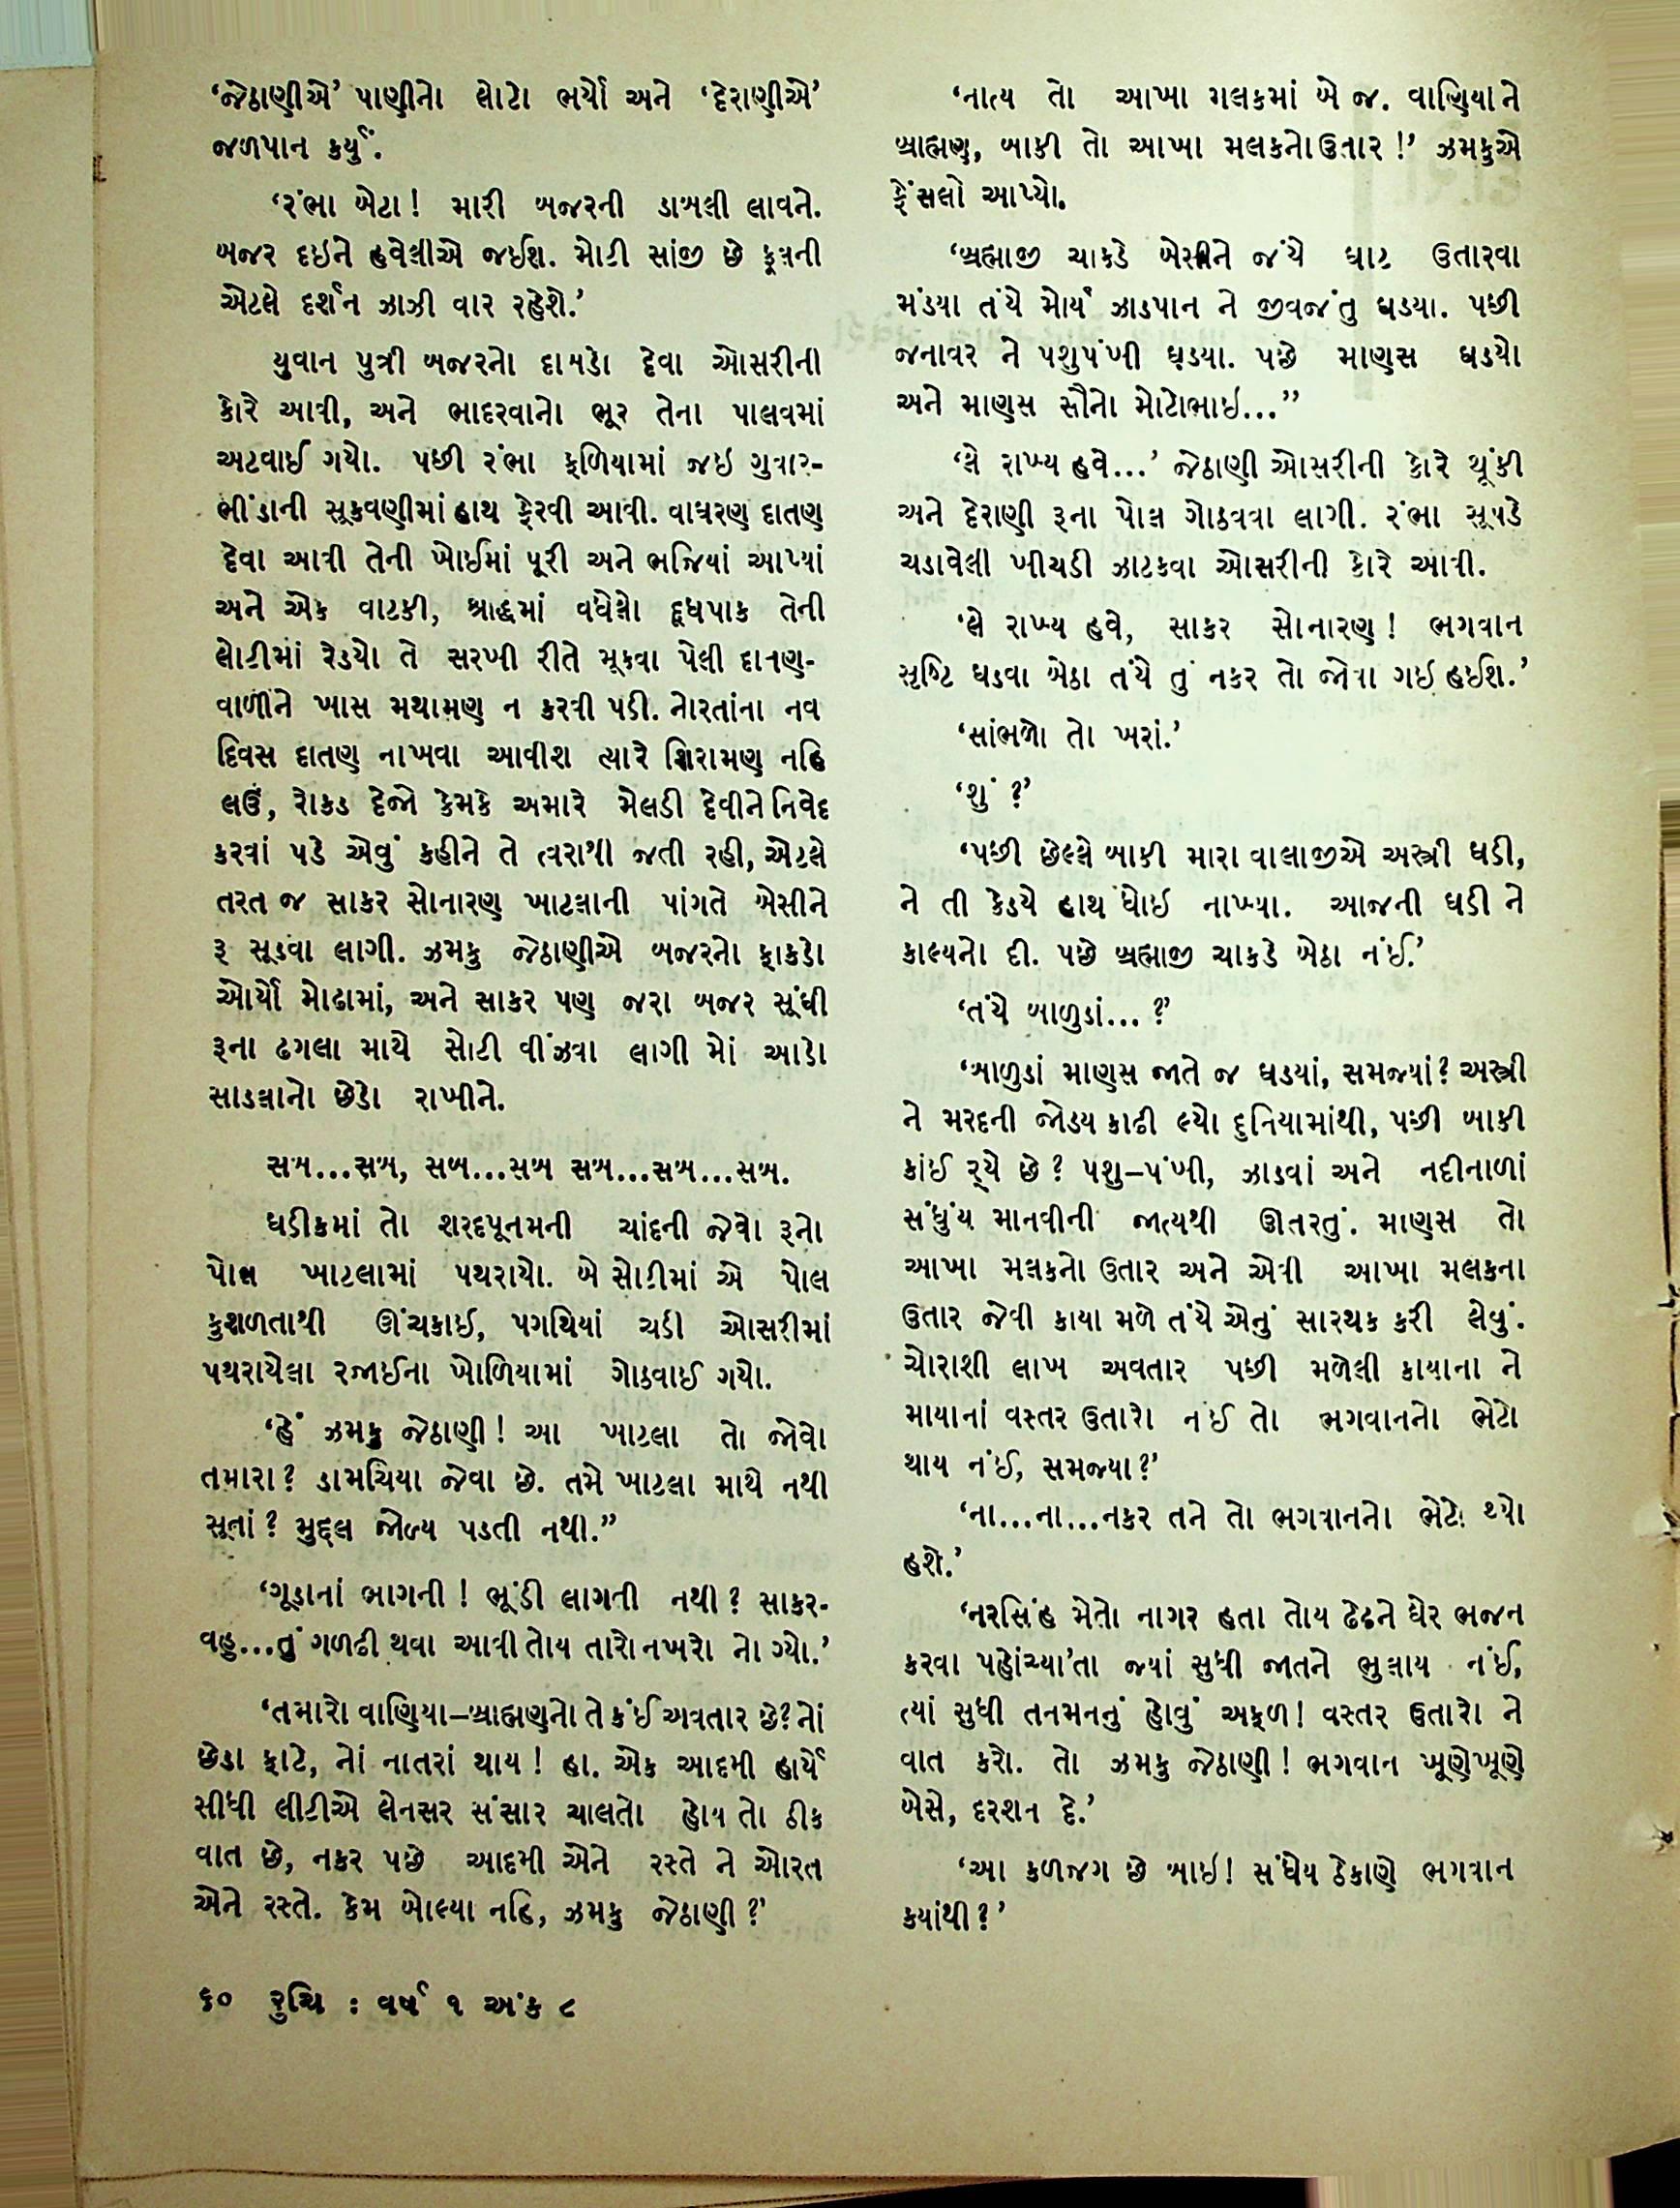 ‘જેઠાણીએ’ પાણીનો લોટો ભર્યો અને ‘દેરાણીએ’
જળપાન કર્યું.
‘રંભા બેટા! મારી બજરની ડાબલી લાવને.
બજર દઇને હવેલીએ જઈશ. મોટી સાંજી છે ફૂલની
એટલે દર્શન ઝાઝી વાર રહેશે.’
યુવાન પુત્રી બજરનો દાબડો દેવા ઓસરીની
કોરે આવી, અને ભાદરવાનો ભૂર તેના પાલવમાં
અટવાઈ ગયો. પછી રંભા ફળિયામાં જઇ ગુવાર-
ભીંડાની સૂકવણીમાં હાથ ફેરવી આવી. વાઘરણ દાતણ
દેવા આવી તેની ખોઈમાં પૂરી અને ભજિયાં આપ્યાં
અને એક વાટકી, શ્રાદ્ધમાં વધેલો દૂધપાક તેની
લોટીમાં રેડયો તે સરખી રીતે મૂકવા પેલી દાતણ-
વાળીને ખાસ મથામણ ન કરવી પડી. નોરતાંના નવ
દિવસ દાતણ નાખવા આવીશ ત્યારે શિરામણ નહિ
લઉં, રોકડ દેજો કેમકે અમારે મેલડી દેવીને નિવેદ
કરવાં પડે એવું કહીને તે ત્વરાથી જતી રહી, એટલે
તરત જ સાકર સોનારણ ખાટલાની પાંગતે બેસીને
રૂ સૂડવા લાગી. ઝમકુ જેઠાણીએ બજરનો ફાકડો
ઓર્યો મોઢામાં, અને સાકર પણ જરા બજર સૂંઘી
રૂના ઢગલા માથે સોટી વીંઝવા લાગી મોં આડો
સાડલાનો છેડો રાખીને.
સબ...સબ, સબ...સબ સબ...સબ...સબ.
ઘડીકમાં તો શરદપૂનમની ચાંદની જેવો રૂનો
પોલ ખાટલામાં પથરાયો. બે સોટીમાં એ પોલ
કુશળતાથી ઊંચકાઈ, પગથિયાં ચડી ઓસરીમાં
પથરાયેલા રજાઈના ખોળિયામાં ગોઠવાઈ ગયો.
‘હેં ઝમકુ જેઠાણી! આ ખાટલા તો જોવો
તમારા? ડામચિયા જેવા છે. તમે ખાટલા માથે નથી
સૂતાં? મુદ્દલ જોળ્ય પડતી નથી.”
‘ગૂડાનાં ભાગની! ભૂંડી લાગતી નથી? સાકર-
વહુ...તું ગળઢી થવા આવી તોય તારો નખરો નો ગ્યો.’
‘તમારો વાણિયા–બ્રાહ્મણનો તે કંઈ અવતાર છે? નોં
છેડા ફાટે, નોં નાતરાં થાય! હા. એક આદમી હાર્યે
સીધી લીટીએ લેનસર સંસાર ચાલતો હોય તો ઠીક
વાત છે, નકર પછે આદમી એને રસ્તે ને ઓરત
એને રસ્તે. કેમ બોલ્યા નહિ, ઝમકુ જેઠાણી?’
‘નાત્ય તો આખા ગલકમાં બે જ. વાણિયા ને
બ્રાહ્મણ, બાકી તો આખા મલકનો ઉતાર!’ ઝમકુએ
ફેંસલો આપ્યો.
‘બ્રહ્માજી ચાકડે બેસીને જંયે ઘાટ ઉતારવા
મંડયા તંયે મોર્ય ઝાડપાન ને જીવજંતુ ઘડયા. પછી
જનાવર ને પશુપંખી ઘડયા. પછે માણસ ઘડયો
અને માણસ સૌનો મોટોભાઇ...”
‘લે રાખ્ય હવે...’ જેઠાણી ઓસરીની કોરે થૂંકી
અને દેરાણી રૂના પોલ ગોઠવવા લાગી. રંભા સૂપડે
ચડાવેલી ખીચડી ઝાટકવા ઓસરીની કોરે આવી.
‘લે રાખ્ય હવે, સાકર સોનારણ! ભગવાન
સૃષ્ટિ ઘડવા બેઠા તંયે તું નકર તો જોવા ગઇ હઇશ.’
‘સાંભળો તો ખરાં.’
‘શું ?’
‘પછી છેલ્લે બાકી મારા વાલાજીએ અસ્ત્રી ઘડી,
ને તી કેડયે હાથ ધોઇ નાખ્યા. આજની ઘડી ને
કાલ્યનો દી. પછે બ્રહ્માજી ચાકડે બેઠા નંઈ.’
‘તંયે બાળુડાં... ?’
‘બાળુડાં માણસ જાતે જ ઘડયાં, સમજ્યાં? અસ્ત્રી
ને મરદની જોડય કાઢી લ્યો દુનિયામાંથી, પછી બાકી
કાંઈ ર્‌યે છે? પશુ–પંખી, ઝાડવાં અને નદીનાળાં
સંધુંય માનવીની જાત્યથી ઊતરતું. માણસ તો
આખા મલકનો ઉતાર અને એવી આખા મલકના
ઉતાર જેવી કાયા મળે તંયે એનું સારથક કરી લેવું.
ચોરાશી લાખ અવતાર પછી મળેલી કાયાના ને
માયાનાં વસ્તર ઉતારો નંઈ તો ભગવાનનો ભેટો
થાય નંઈ, સમજ્યા?’
‘ના...ના...નકર તને તો ભગવાનનો ભેટો થ્યો
હશે.’
‘નરસિંહ મેતો નાગર હતા તોય ઢેઢને ઘેર ભજન
કરવા પહોંચ્યા’તા જ્યાં સુધી જાતને ભુલાય નંઈ,
ત્યાં સુધી તનમનનું હોવું અફળ! વસ્તર ઉતારો ને
વાત કરો. તો ઝમકુ જેઠાણી! ભગવાન ખૂણેખૂણે
બેસે, દરશન દે.’
‘આ કળજગ છે બાઇ! સંધેય ઠેકાણે ભગવાન
કયાંથી?’
૬૦ રુચિ : વર્ષ ૧ અંક ૮